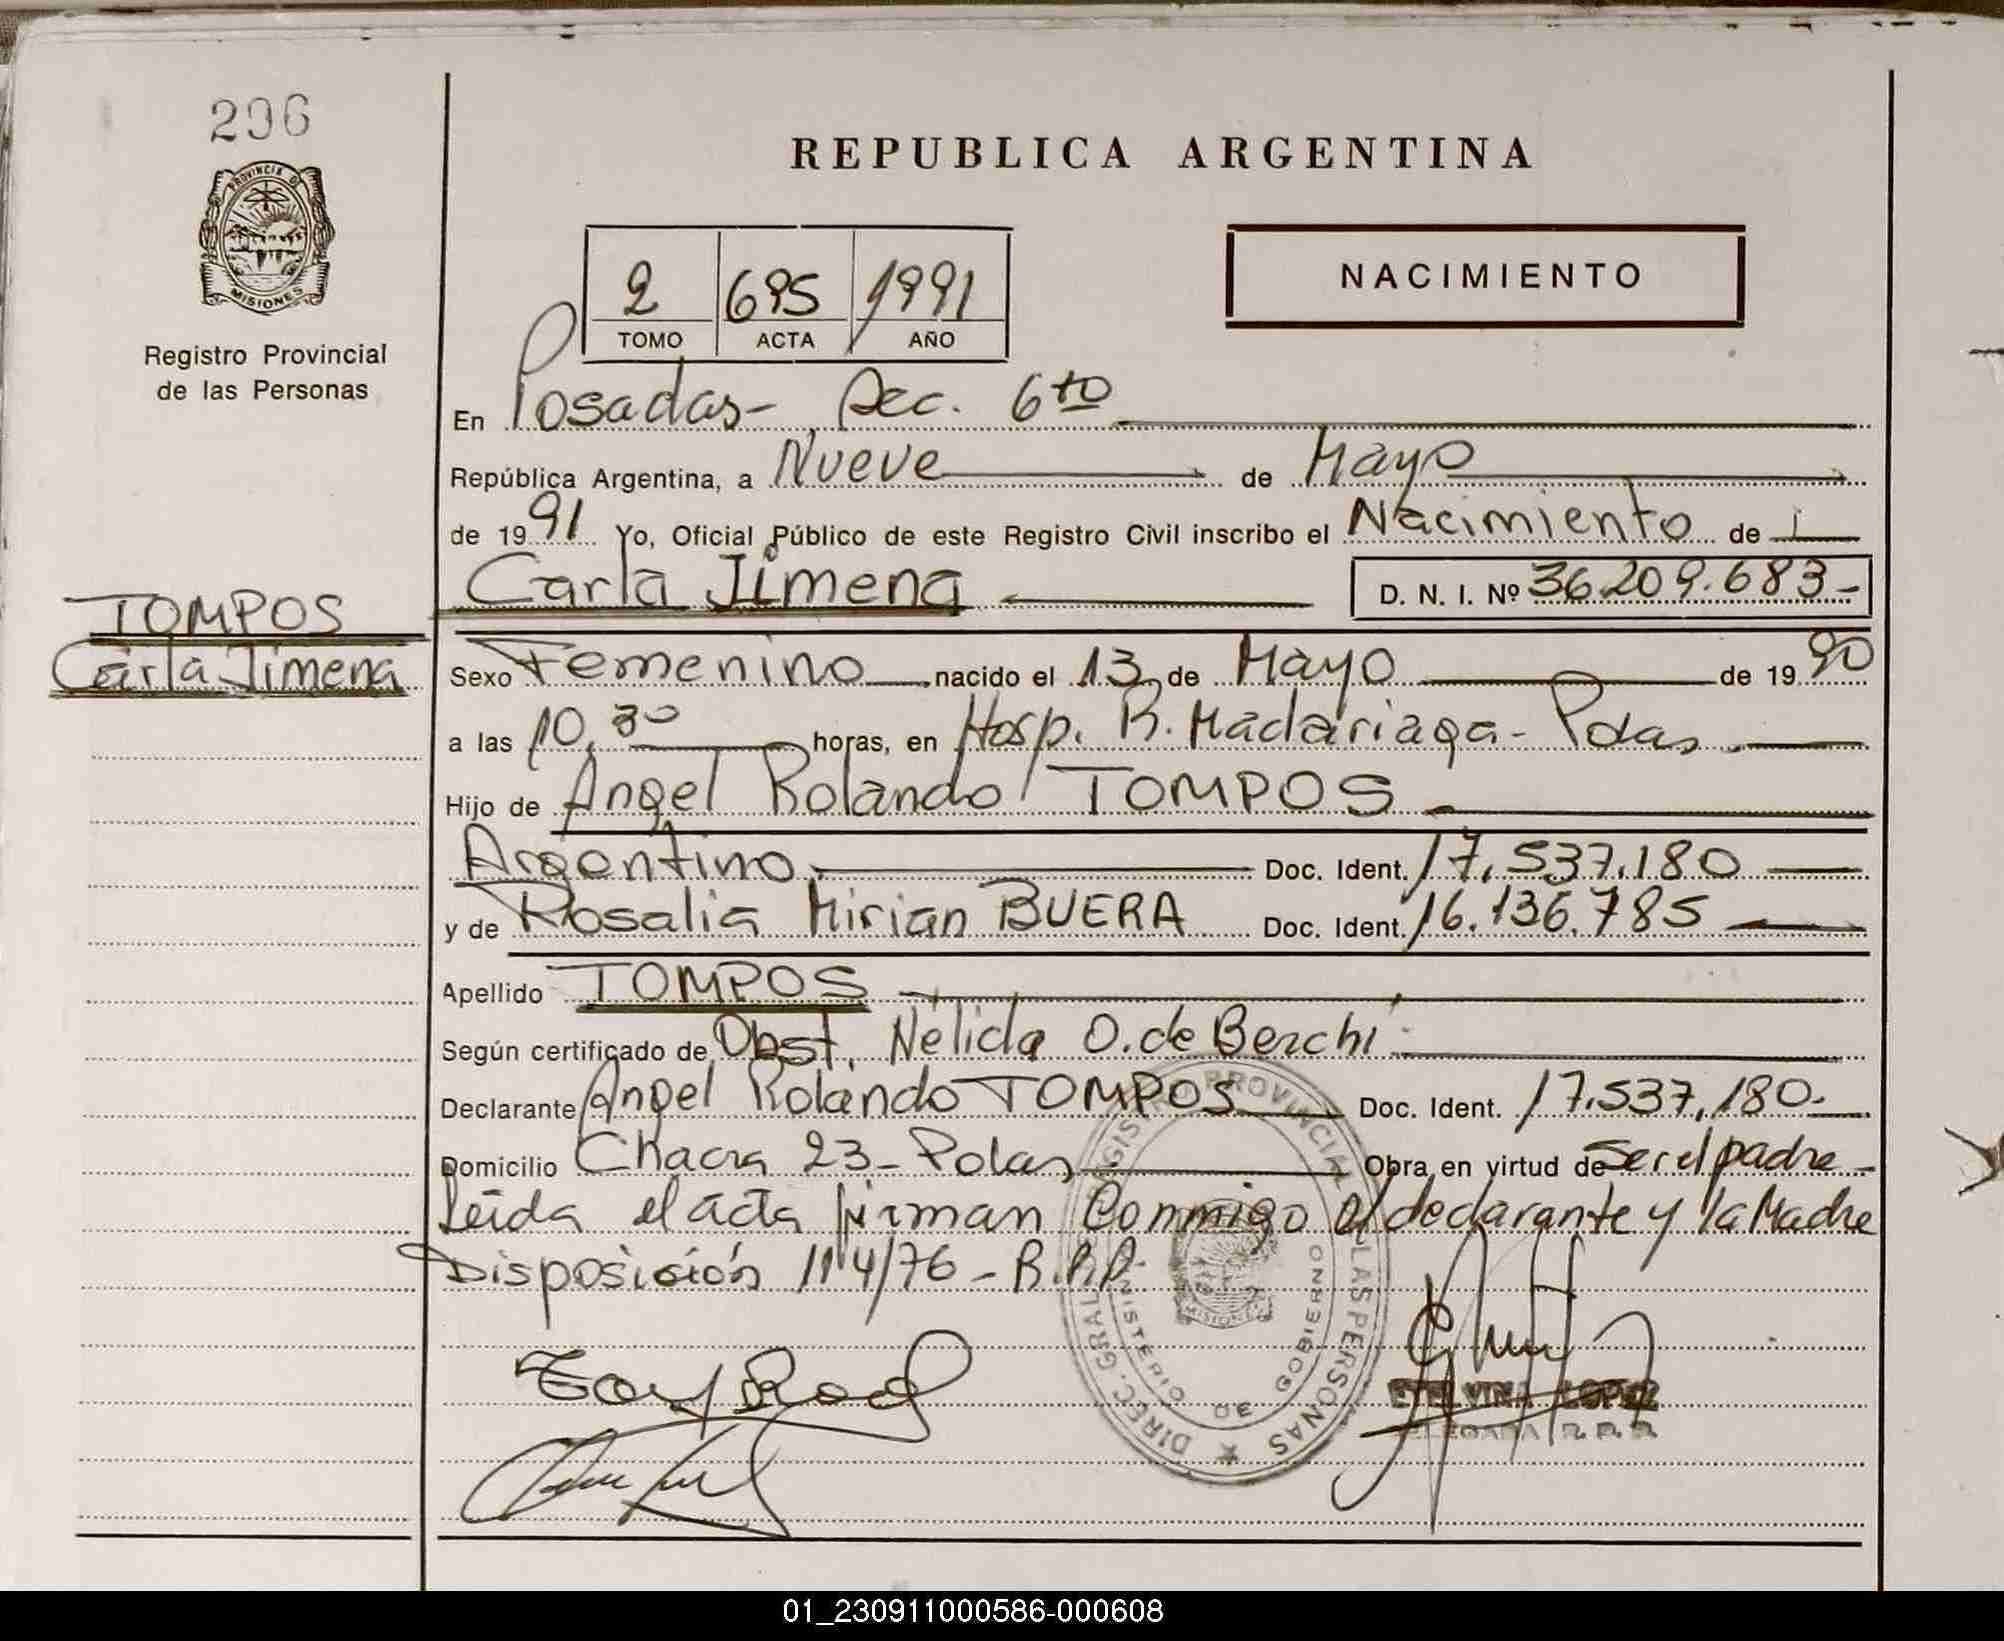 296
PROVINCIA DE
MISIONES
Registro Provincial
de las Personas
TOMPOS
Carla Jimena
REPUBLICA ARGENTINA
2 695 1991
TOMO ACTA AÑO
NACIMIENTO
En Posadas- Sec. 6to
República Argentina, a Nueve de Mayo
de 1991 Yo, Oficial Público de este Registro Civil inscribo el Nacimiento de
Carla Jimena D. N. I. Nº 36.209.683-
Sexo Femenino nacido el 13 de Mayo de 1990
a las 10,30 horas, en Hosp. R. Madariaga- Pdas
Hijo de Angel Rolando TOMPOS
Argentino Doc. Ident. 17.537.180
y de Rosalia Mirian BUERA Doc. Ident. 16.136.785
Apellido TOMPOS
Según certificado de Obst. Nélida O. de Berchi
Declarante Angel Rolando TOMPOS Doc. Ident. 17.537.180.
Domicilio Chacra 23- Pdas Obra en virtud de ser el padre-
Leida el acta firman Conmigo el declarante y la Madre
Disposición 114/76 - R.P.P.
DIREC. GRAL. REGISTRO PROVINCIAL DE LAS PERSONAS
MINISTERIO DE GOBIERNO
MISIONES
ETELVINA LOPEZ
DELEGADA R.P.P.
01_230911000586-000608